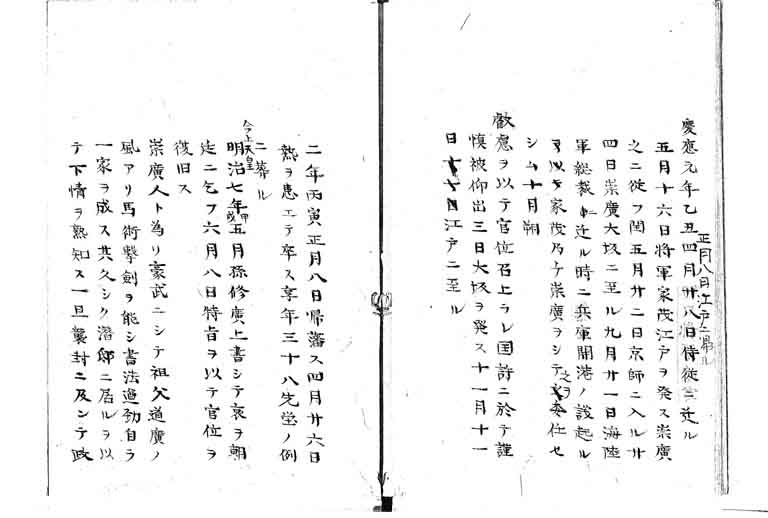 慶應元年乙丑四月廿八日侍従ニ迁ル
正月八日江戸ニ帰ル
五月十六日将軍家茂江戸ヲ発ス崇廣
之ニ従フ閏五月廿二日京師ニ入ル廿
四日崇廣大坂ニ至ル九月廿一日海陸
軍総裁ニ迁ル時ニ兵庫開港ノ議起ル
ヲ以テ家茂乃チ崇廣ヲシテ之ヲ委任セ
シム十月朔
敕應ヲ以テ官位召上ラレ国許ニ於テ謹
慎被仰出三日大坂ヲ発ス十一月十一
日江戸ニ至ル
二年丙寅正月八日帰藩ス四月廿六日
熱ヲ患エテ卒ス享年三十八先塋ノ例
ニ葬ル
今上天皇
明治七年甲戌五月孫修廣上書シテ哀ヲ朝
廷ニ乞フ六月八日特旨ヲ以テ官位ヲ
復旧ス
崇廣人ト為リ豪武ニシテ祖父道廣ノ
風アリ馬術撃劍ヲ能シ書法遒勁自ラ
一家ヲ成ス其久シク潜邸ニ居ルヲ以
テ下情ヲ熟知ス一旦襲封ニ及ンテ政